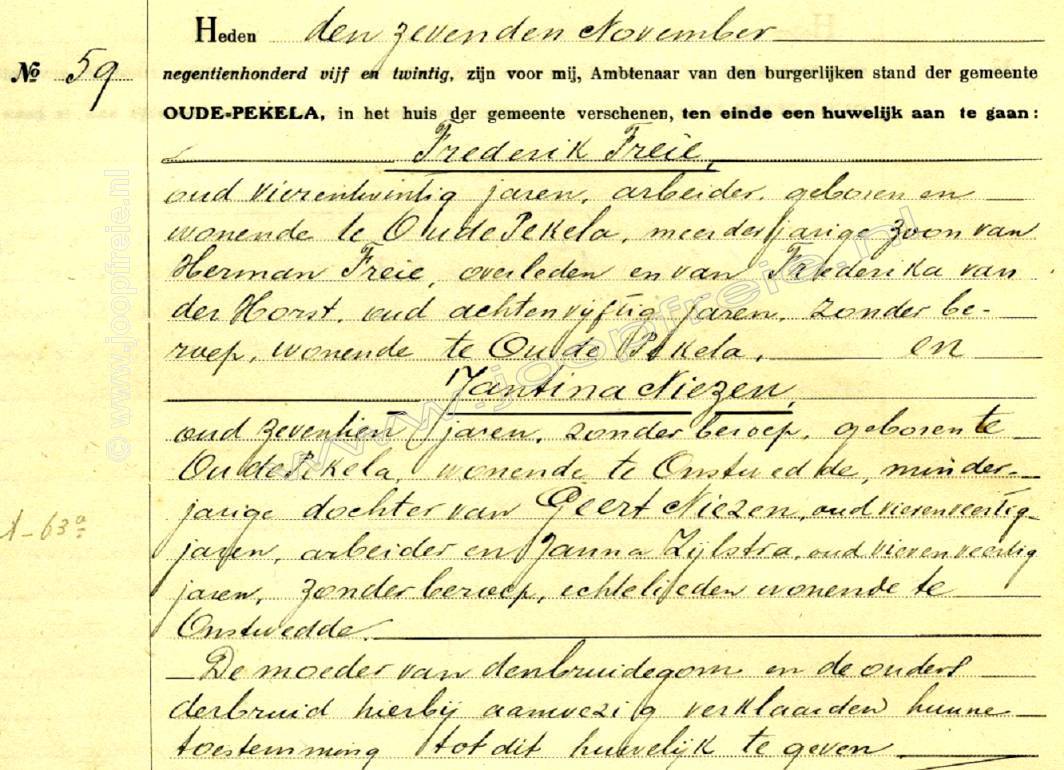 Heden den zevenden November
№ 59
negentienhonderd vijf en twintig, zijn voor mij, Ambtenaar van den burgerlijken stand der gemeente
OUDE-PEKELA, in het huis der gemeente verschenen, ten einde een huwelijk aan te gaan:
Frederik Freie,
oud vierentwintig jaren, arbeider, geboren en
wonende te Oude Pekela, meerderjarige zoon van
Herman Freie, overleden en van Frederika van
der Horst, oud achtenvijftig jaren, zonder be-
roep, wonende te Oude Pekela, en
Jantina Niezen,
oud zeventien jaren, zonder beroep, geboren te
Oude Pekela, wonende te Onstwedde, minder-
jarige dochter van Geert Niezen, oud vierenveertig
jaren, arbeider en Janna Zijlstra, oud vierenveertig
jaren, zonder beroep, echtelieden wonende te
Onstwedde.
De moeder van den bruidegom en de ouders
der bruid hierbij aanwezig verklaarden hunne
toestemming tot dit huwelijk te geven
A-63a
© www.joopfreie.nl
www.joopfreie.nl